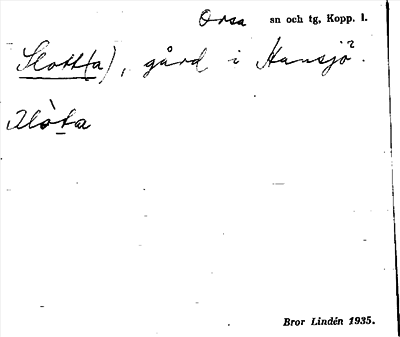 Orsa sn och tg, Kopp. l.
Slott(a), gård i Hansjö?.
Bror Lindén 1935.